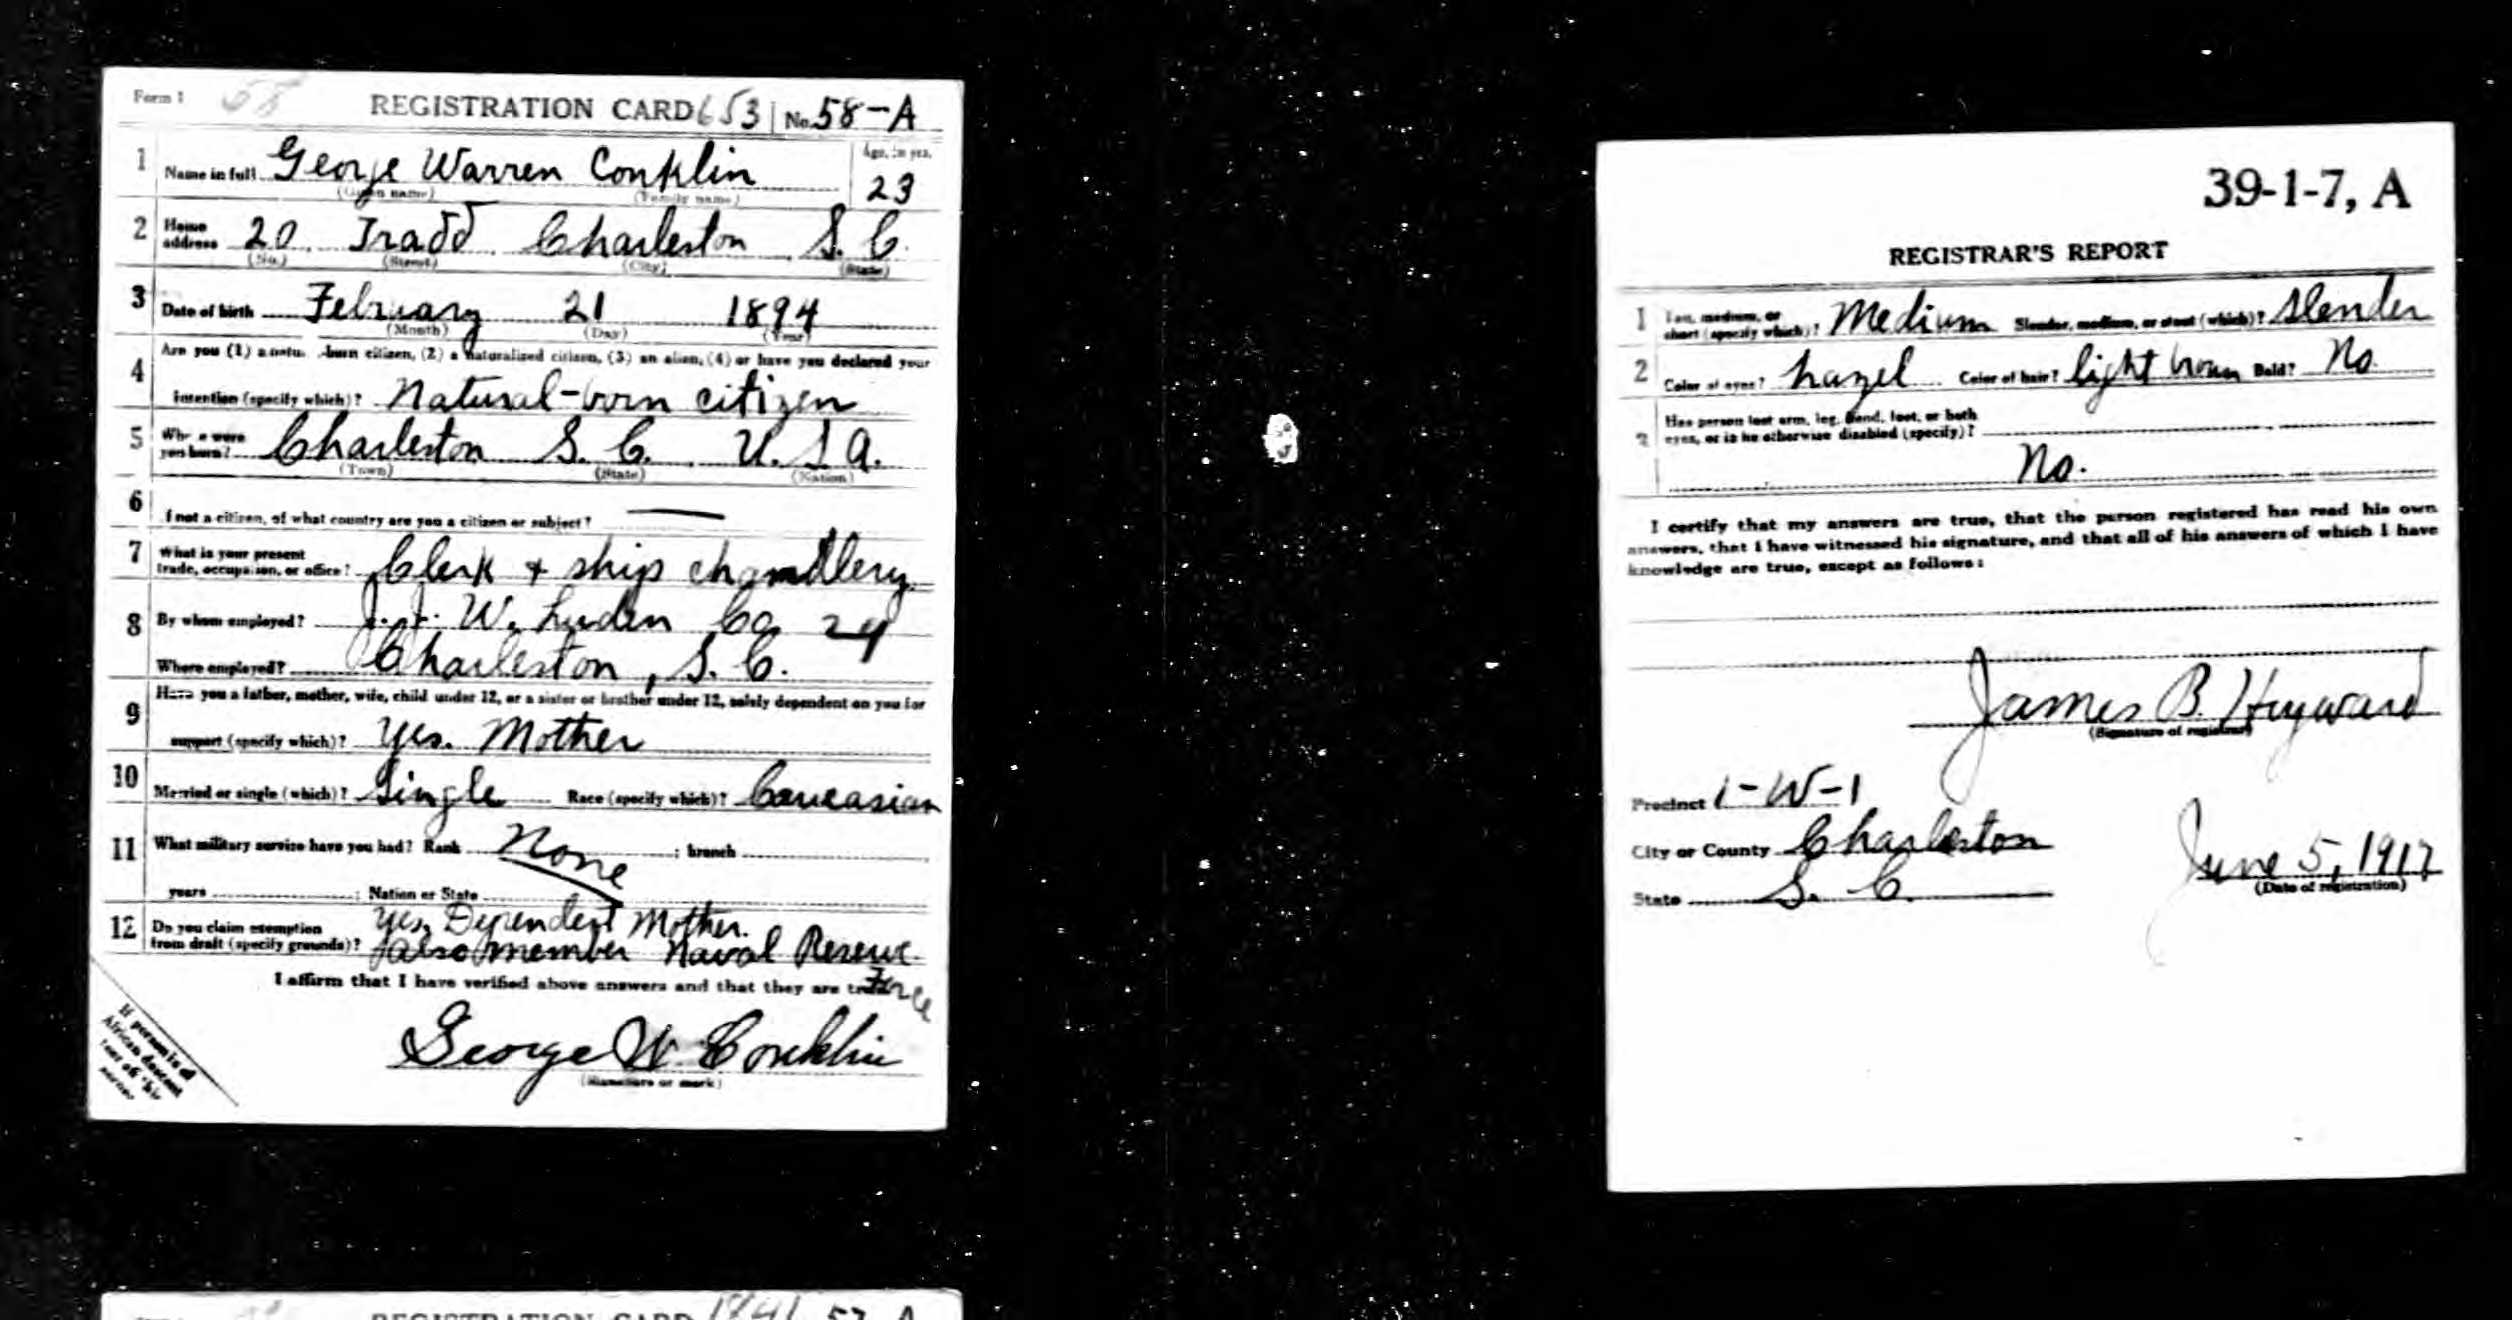 Form 1 58 REGISTRATION CARD 653 No. 58-A
1 Name in full George Warren Conklin Age, in yrs. 23
(Given name) (Family name)
2 Home address 20 Tradd Charleston S. C.
(No.) (Street) (City) (State)
3 Date of birth February 21 1894
(Month) (Day) (Year)
4 Are you (1) a natu -born citizen, (2) a naturalized citizen, (3) an alien, (4) or have you declared your
intention (specify which)? Natural-born citizen
5 Where were you born? Charleston S. C. U. S A.
(Town) (State) (Nation)
6 If not a citizen, of what country are you a citizen or subject? —
7 What is your present trade, occupation, or office? Clerk + ship chandlery
8 By whom employed? J. J. W. Luden Co 24
Where employed? Charleston, S. C.
9 Have you a father, mother, wife, child under 12, or a sister or brother under 12, solely dependent on you for
support (specify which)? Yes. Mother
10 Married or single (which)? Single Race (specify which)? Caucasian
11 What military service have you had? Rank None ; branch
years ; Nation or State
12 Do you claim exemption from draft (specify grounds)? Yes, Dependent Mother.
Also member Naval Reserve Force
I affirm that I have verified above answers and that they are true.
George W. Conklin
(Signature or mark)
If person is of
African descent
tear off this
corner
REGISTRATION CARD 57 A
39-1-7, A
REGISTRAR'S REPORT
1 Tall, medium, or short (specify which)? Medium Slender, medium, or stout (which)? Slender
2 Color of eyes? hazel Color of hair? light brown Bald? No.
3 Has person lost arm, leg, hand, foot, or both
eyes, or is he otherwise disabled (specify)?
No.
I certify that my answers are true, that the person registered has read his own
answers, that I have witnessed his signature, and that all of his answers of which I have
knowledge are true, except as follows:
James B. Heyward
(Signature of registrar)
Precinct 1-W-1
City or County Charleston
State S. C.
June 5, 1917
(Date of registration)